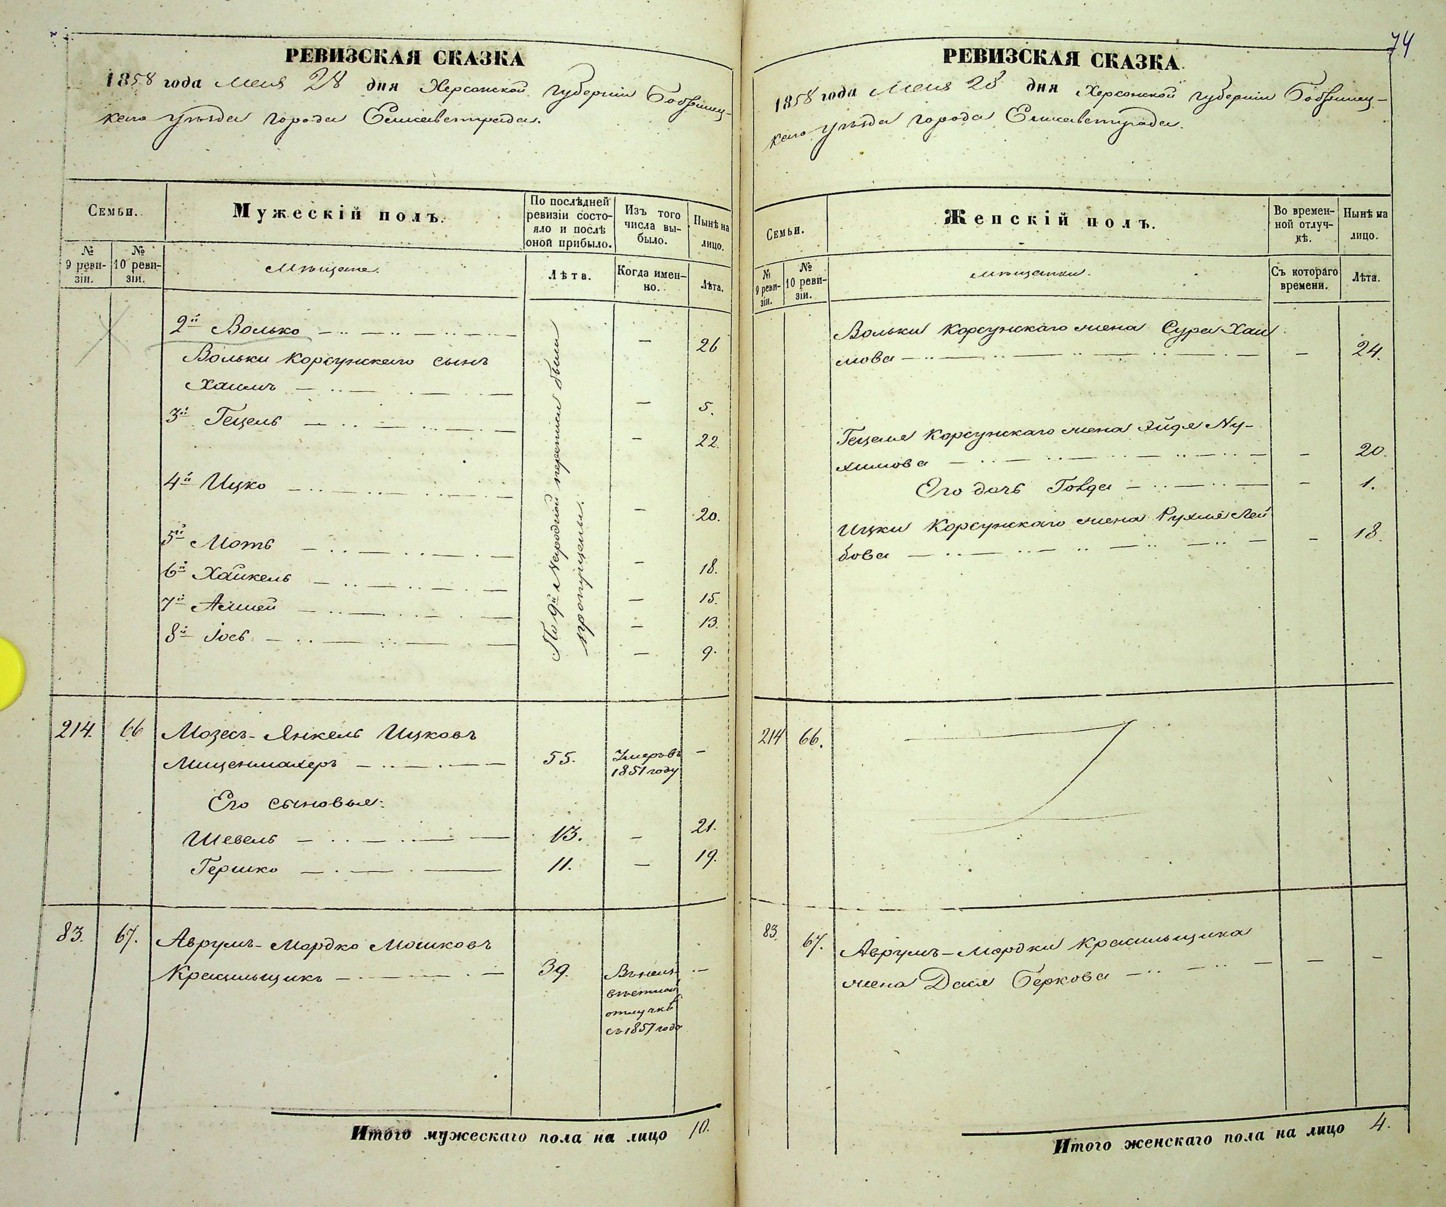 74
РЕВИЗСКАЯ СКАЗКА
1858 года Мая 28 дня Херсонской Губернии Бобринец-
каго уѣзда города Елисаветграда.
Семьи.
Мужескій полъ.
По послѣдней ревизіи состо-
яло и послѣ оной прибыло.
Изъ того числа вы-
было.
Нынѣ на лицо.
№ 9 реви-
зіи.
№ 10 реви-
зіи.
Мѣщане.
Лѣта.
Когда имен-
но.
Лѣта.
2й Волько — 26
Вольки Корсунскаго сынъ
Хаимъ — 5.
3й Гецель — 22
4й Ицко — 20.
5й Моть — 18.
6й Хайкель — 15.
7й — 13.
8й Іось — 9.
По 9й Народной переписи были
пропущены.
214. 66 Мозесъ-Янкель Ицковъ
Мищенмахеръ 55. Умеръ въ
1851 году —
Его сыновья:
Шевель 13. — 21.
Гершко 11. — 19.
83. 67. Аврумъ-Мордко Мошковъ
Красильщикъ 39. Въ неиз-
вѣстной
отлучкѣ
съ 1857 года —
Итого мужескаго пола на лицо 10.
РЕВИЗСКАЯ СКАЗКА
1858 года Мая 28 дня Херсонской Губерніи Бобринец-
каго уѣзда города Елисаветграда.
Семьи.
Женскій полъ.
Во времен-
ной отлуч-
кѣ.
Нынѣ на лицо.
№ 9 реви-
зіи.
№ 10 реви-
зіи.
Мѣщанки.
Съ котораго времени.
Лѣта.
Вольки Корсунскаго жена Сура Хаи
мова — 24.
Гецеля Корсунскаго жена Эйдя Ну-
химова — 20.
Его дочь Голда — 1.
Ицки Корсунскаго жена Рухля Лей
бова — 18.
214 66.
83. 67. Аврумъ-Мордки Красильщика
жена Дася Беркова — —
Итого женскаго пола на лицо 4.